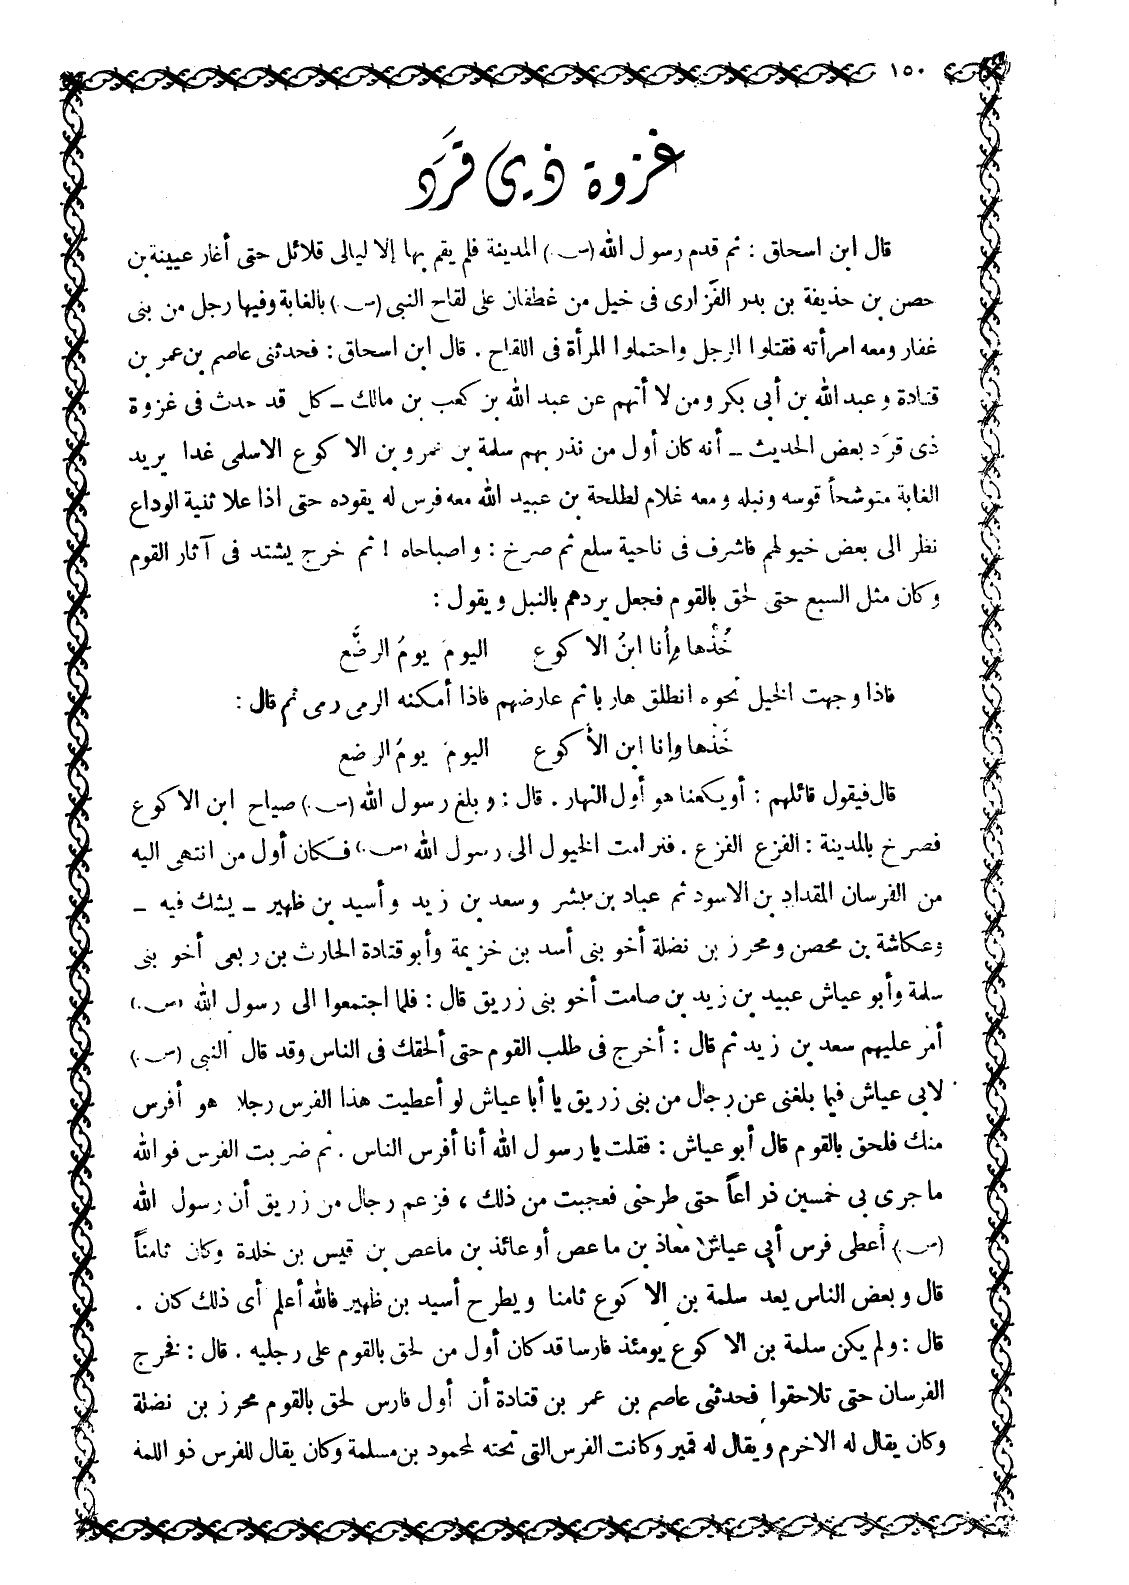 ١٥٠
غزوة ذي قرَد
قال ابن اسحاق : ثم قدم رسول الله (ﷺ) المدينة فلم يقم بها إلا ليالى قلائل حتى أغار عيينة بن
حصن بن حذيفة بن بدر الفَزارى فى خيل من غطفان على لقاح النبى (ﷺ) بالغابة وفيها رجل من بنى
غفار ومعه امرأته فقتلوا الرجل واحتملوا المرأة فى اللقاح . قال ابن اسحاق : فحدثنى عاصم بن عمر بن
قتادة وعبد الله بن أبى بكر ومن لا أتهم عن عبد الله بن كعب بن مالك ــ كل قد حدث فى غزوة
ذى قرَد بعض الحديث ــ أنه كان أول من نذر بهم سلمة بن عمرو بن الاكوع الاسلمى غدا يريد
الغابة متوشحاً قوسه ونبله ومعه غلام لطلحة بن عبيد الله معه فرس له يقوده حتى اذا علا ثنية الوداع
نظر الى بعض خيولهم فاشرف فى ناحية سلع ثم صرخ : واصباحاه ! ثم خرج يشتد فى آثار القوم
وكان مثل السبع حتى لحق بالقوم فجعل يردهم بالنبل ويقول :
خُذها وأنا ابنُ الاكوع اليومَ يومُ الرضَّع
فاذا وجهت الخيل نحوه انطلق هاربا ثم عارضهم فاذا أمكنه الرمى رمى ثم قال :
خَذها وإنا ابن الأكوع اليومَ يومُ الرضع
قال فيقول قائلهم : أويكعنا هو أول النهار . قال : وبلغ رسول الله (ﷺ) صياح ابن الاكوع
فصرخ بالمدينة : الفزع الفزع . فترامت الخيول الى رسول الله (ﷺ) فكان أول من انتهى اليه
من الفرسان المقداد بن الاسود ثم عباد بن بشر وسعد بن زيد وأسيد بن ظهير ــ يشك فيه ــ
وعكاشة بن محصن ومحرز بن نضلة أخو بنى أسد بن خزيمة وأبو قتادة الحارث بن ربعى أخو بنى
سلمة وأبو عياش عبيد بن زيد بن صامت أخو بنى زريق قال : فلما اجتمعوا الى رسول الله (ﷺ)
أمر عليهم سعد بن زيد ثم قال : أخرج فى طلب القوم حتى ألحقك فى الناس وقد قال النبى (ﷺ)
لابى عياش فيما بلغنى عن رجال من بنى زريق يا أبا عياش لو أعطيت هذا الفرس رجلا هو أفرس
منك فلحق بالقوم قال أبو عياش : فقلت يا رسول الله أنا أفرس الناس . ثم ضربت الفرس فوالله
ما جرى بى خمسين ذراعاً حتى طرحنى فعجبت من ذلك ، فزعم رجال من زريق أن رسول الله
(ﷺ) أعطى فرس أبى عياش معاذ بن ماعص أو عائذ بن ماعص بن قيس بن خلدة وكان ثامناً
قال وبعض الناس يعد سلمة بن الاكوع ثامنا ويطرح أسيد بن ظهير فالله أعلم أى ذلك كان .
قال : ولم يكن سلمة بن الاكوع يومئذ فارسا قد كان أول من لحق بالقوم على رجليه . قال : فخرج
الفرسان حتى تلاحقوا فحدثنى عاصم بن عمر بن قتادة أن أول فارس لحق بالقوم محرز بن نضلة
وكان يقال له الاخرم ويقال له قمير وكانت الفرس التى تحته لمحمود بن مسلمة وكان يقال للفرس ذو اللمة